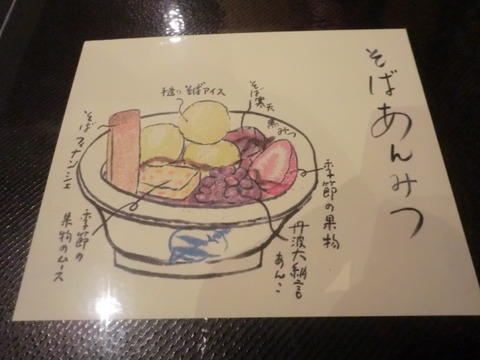 そばあんみつ
手造りそばアイス
そば寒天
黒みつ
そばフィナンシェ
季節の果物
丹波大納言
あんこ
季節の
果物のムース